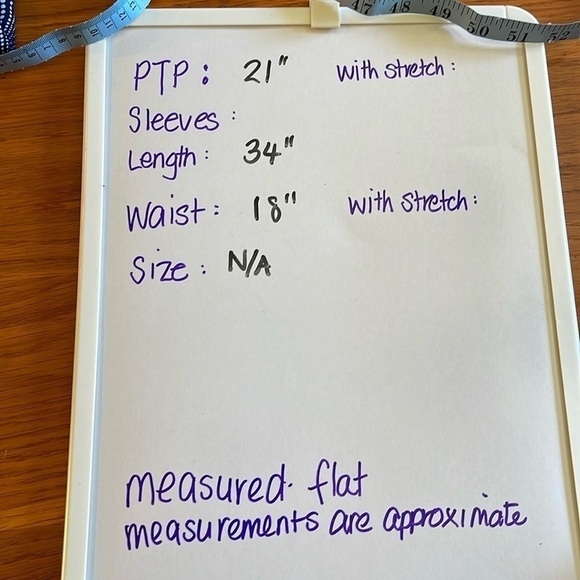 PTP: 21" with stretch:
Sleeves:
Length: 34"
Waist: 18" with stretch:
Size: N/A
measured. flat
measurements are approximate
47 48 49 50 51 52